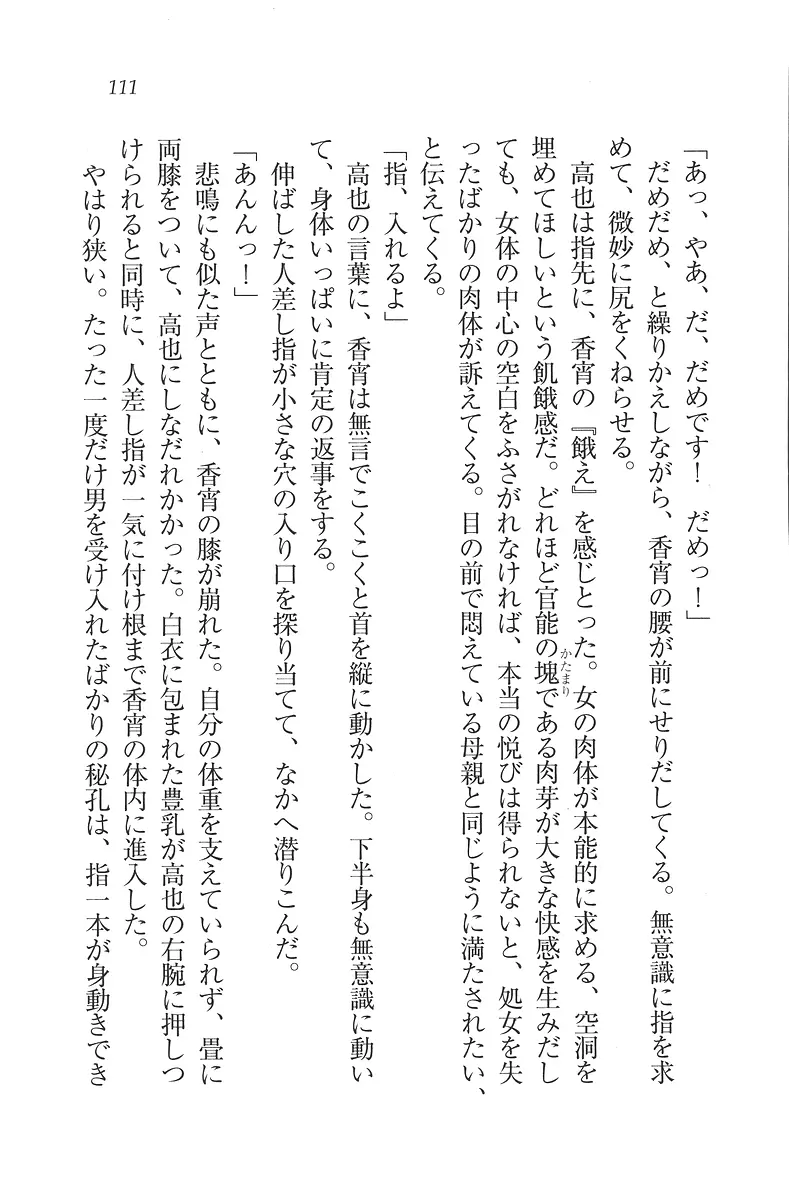 111
「あっ、やあ、だ、だめです！　だめっ！」
だめだめ、と繰りかえしながら、香宵の腰が前にせりだしてくる。無意識に指を求
めて、微妙に尻をくねらせる。
高也は指先に、香宵の『餓え』を感じとった。女の肉体が本能的に求める、空洞を
埋めてほしいという飢餓感だ。どれほど官能の塊である肉芽が大きな快感を生みだし
かたまり
ても、女体の中心の空白をふさがれなければ、本当の悦びは得られないと、処女を失
ったばかりの肉体が訴えてくる。目の前で悶えている母親と同じように満たされたい、
と伝えてくる。
「指、入れるよ」
高也の言葉に、香宵は無言でこくこくと首を縦に動かした。下半身も無意識に動い
て、身体いっぱいに肯定の返事をする。
伸ばした人差し指が小さな穴の入り口を探り当てて、なかへ潜りこんだ。
「あんんっ！」
悲鳴にも似た声とともに、香宵の膝が崩れた。自分の体重を支えていられず、畳に
両膝をついて、高也にしなだれかかった。白衣に包まれた豊乳が高也の右腕に押しつ
けられると同時に、人差し指が一気に付け根まで香宵の体内に進入した。
やはり狭い。たった一度だけ男を受け入れたばかりの秘孔は、指一本が身動きでき